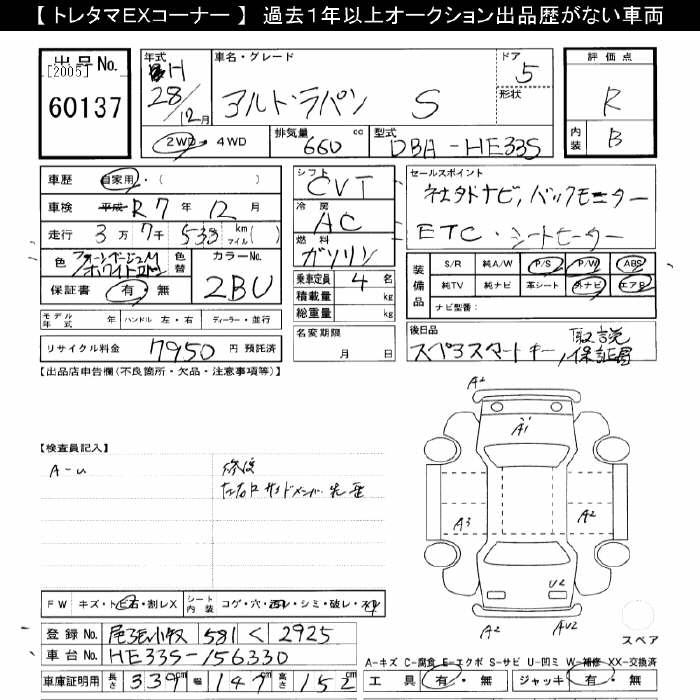 【 トレタマEXコーナー 】 過去１年以上オークション出品歴がない車両
出品 No. [2005]
60137
年式 H 28/12月
車名・グレード アルト・ラパン S
ドア 5
形状
評価点 R
内装 B
2WD・4WD
排気量 660 cc
型式 DBA-HE33S
車歴 自家用・( )
車検 平成 R7 年 12 月
走行 3 万 7 千 533 km マイル ( )
色 ホワイト
色替
カラーNo. 2BU
保証書 有・無
シフト CVT
冷房 AC
燃料 ガソリン
乗車定員 4 名
積載量 kg
総重量 kg
名変期限 月 日
セールスポイント
社外ナビ, バックモニター
ETC・シートヒーター
装備品 S/R 純A/W P/S P/W ABS
純TV 純ナビ 革シート 外ナビ エアB
ナビ型番:
モデル年式 年 ハンドル 左・右 ディーラー・並行
リサイクル料金 7950 円 預託済
後日品
スペアスマートキー, 取説, 保証書
【出品店申告欄(不良箇所・欠品・注意事項等)】
【検査員記入】
A-U
修復
左右Fサイドメンバー先 歪
A2
A1
A3
A2
U2
A2
AU2
スペア
FW キズ・トビ石・割レX シート内装 コゲ・穴・汚レ・シミ・破レ・スレ
登録 No. 尾張小牧 581 く 2925
車台 No. HE33S-156330
A-キズ C-腐食 E-エクボ S-サビ U-凹ミ W-補修 XX-交換済
車庫証明用 長さ 339 幅 147 高さ 152 cm
工具 有・無 ジャッキ 有・無